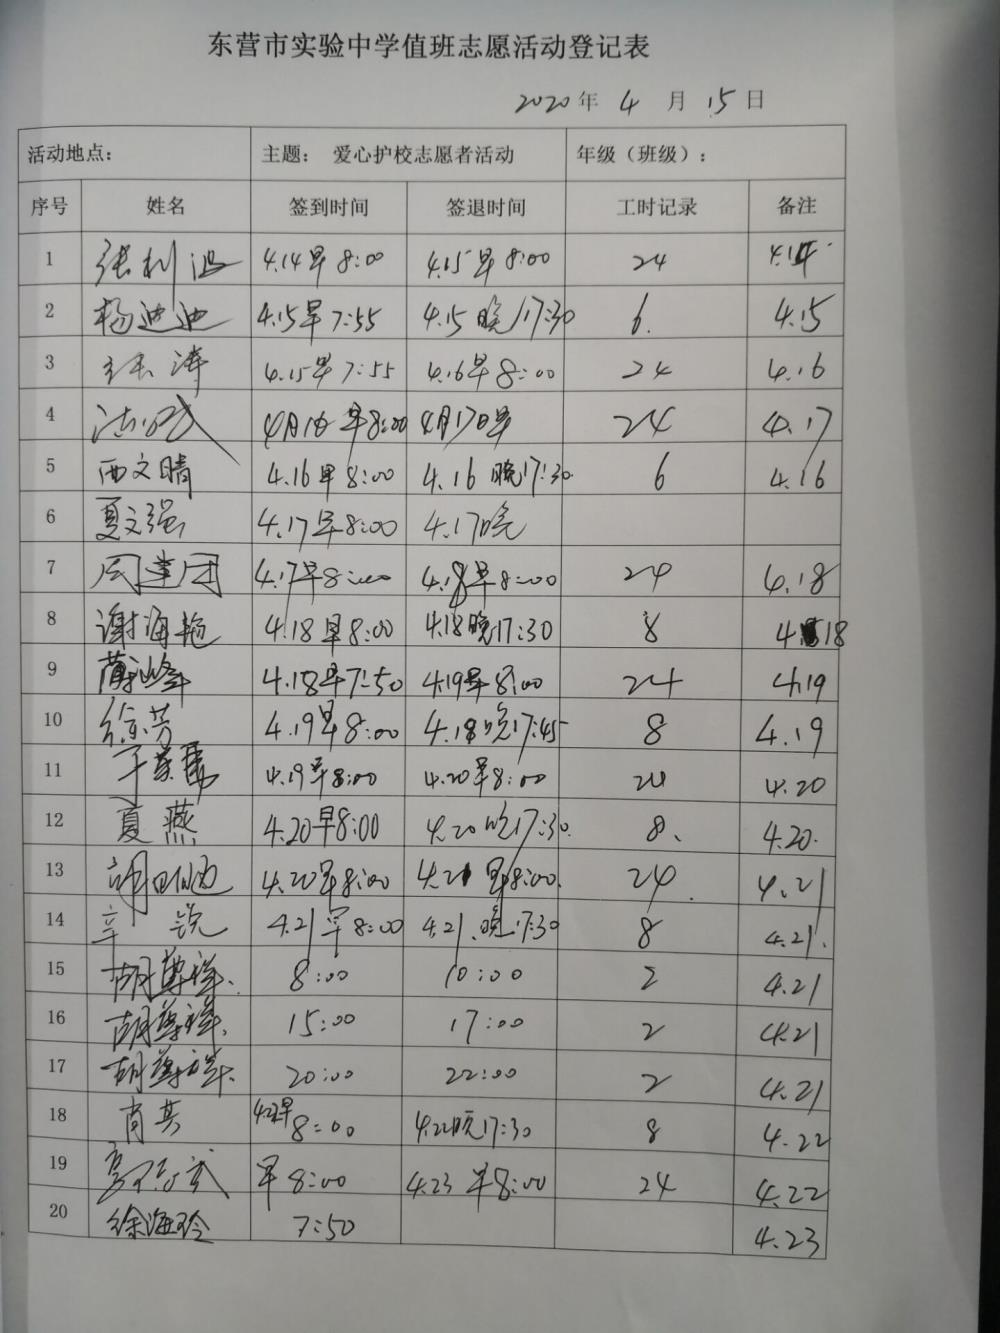 东营市实验中学值班志愿活动登记表
2020年 4 月 15 日
活动地点: 主题: 爱心护校志愿者活动 年级（班级）:
序号 姓名 签到时间 签退时间 工时记录 备注
1 张利波 4.14早8:00 4.15早8:00 24
2 杨迪迪 4.15早7:55 4.15晚17:30 6. 4.15
3 4.15早7:55 4.16早8:00 24 4.16
4 4月16早8:00 4月17日早 24 4.17
5 西文晴 4.16早8:00 4.16晚17:30 6 4.16
6 夏文强 4.17早8:00 4.17晚
7 周建团 4.17早8:00 4.18早8:00 24 4.18
8 谢海艳 4.18早8:00 4.18晚17:30 8 4.18
9 4.18早7:50 4.19早8:00 24 4.19
10 徐芳 4.19早8:00 4.18晚17:45 8 4.19
11 4.19早8:00 4.20早8:00 24 4.20
12 夏燕 4.20早8:00 4.20晚17:30 8、 4.20.
13 4.20早8:00 4.21早8:00. 24. 4.21
14 辛锐 4.21早8:00 4.21.晚17:30 8 4.21.
15 胡尊祥. 8:00 10:00 2 4.21
16 胡尊祥. 15:00 17:00 2 4.21
17 胡尊祥. 20:00 22:00 2 4.21
18 肖英 8:00 4.22晚17:30 8 4.22
19 早8:00 4.23早8:00 24 4.22
20 徐海玲 7:50 4.23